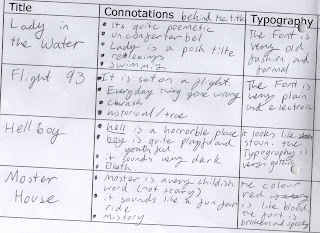 Title
Connotations behind the title
Typography
Lady in
the Water
Its quite poemetic
unconfortorble
Lady is a posh tilte
reflexings
Swimming
The Font is
very old
fashion and
formal
Flight 93
It is set on a flight
Everyday thing gone wrong
Crash
historical/true
The Font is
very plain
and electronic
Hell boy
hell is a horrorble place
boy is quite playful and
youthful
it sounds very dark
Death
it looks like
stoun. the
Typography is
very gothic
Moster
House
moster is a very childish
word (not scary)
it sounds like a fun fair
ride
mistory
the colour
red
is like blood
the font is
broken and spooky